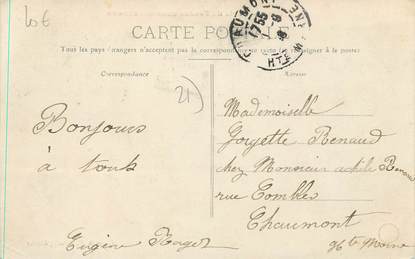 20€
CARTE POSTALE
Tous les pays étrangers n'acceptent pas la correspondance au
à la poste)
Correspondance
Adresse
CHAUMONT
17 55
HTE M
21)
Bonjours
à tous
Eugène Roger
Mademoiselle
Renaud
chez Monsieur achile Renau
rue
Chaumont
Hte Marne